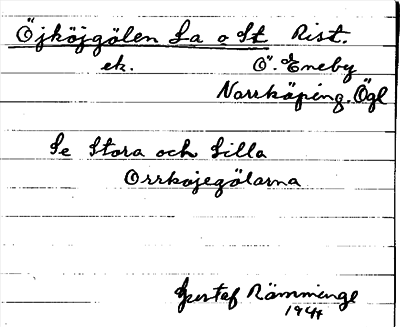 Öjköjgölen La o St Rist.
ek. Ö. Eneby
Norrköping. Ögl
Se Stora och Lilla
Orrkojegölarna
Gustef Rämminge
1944